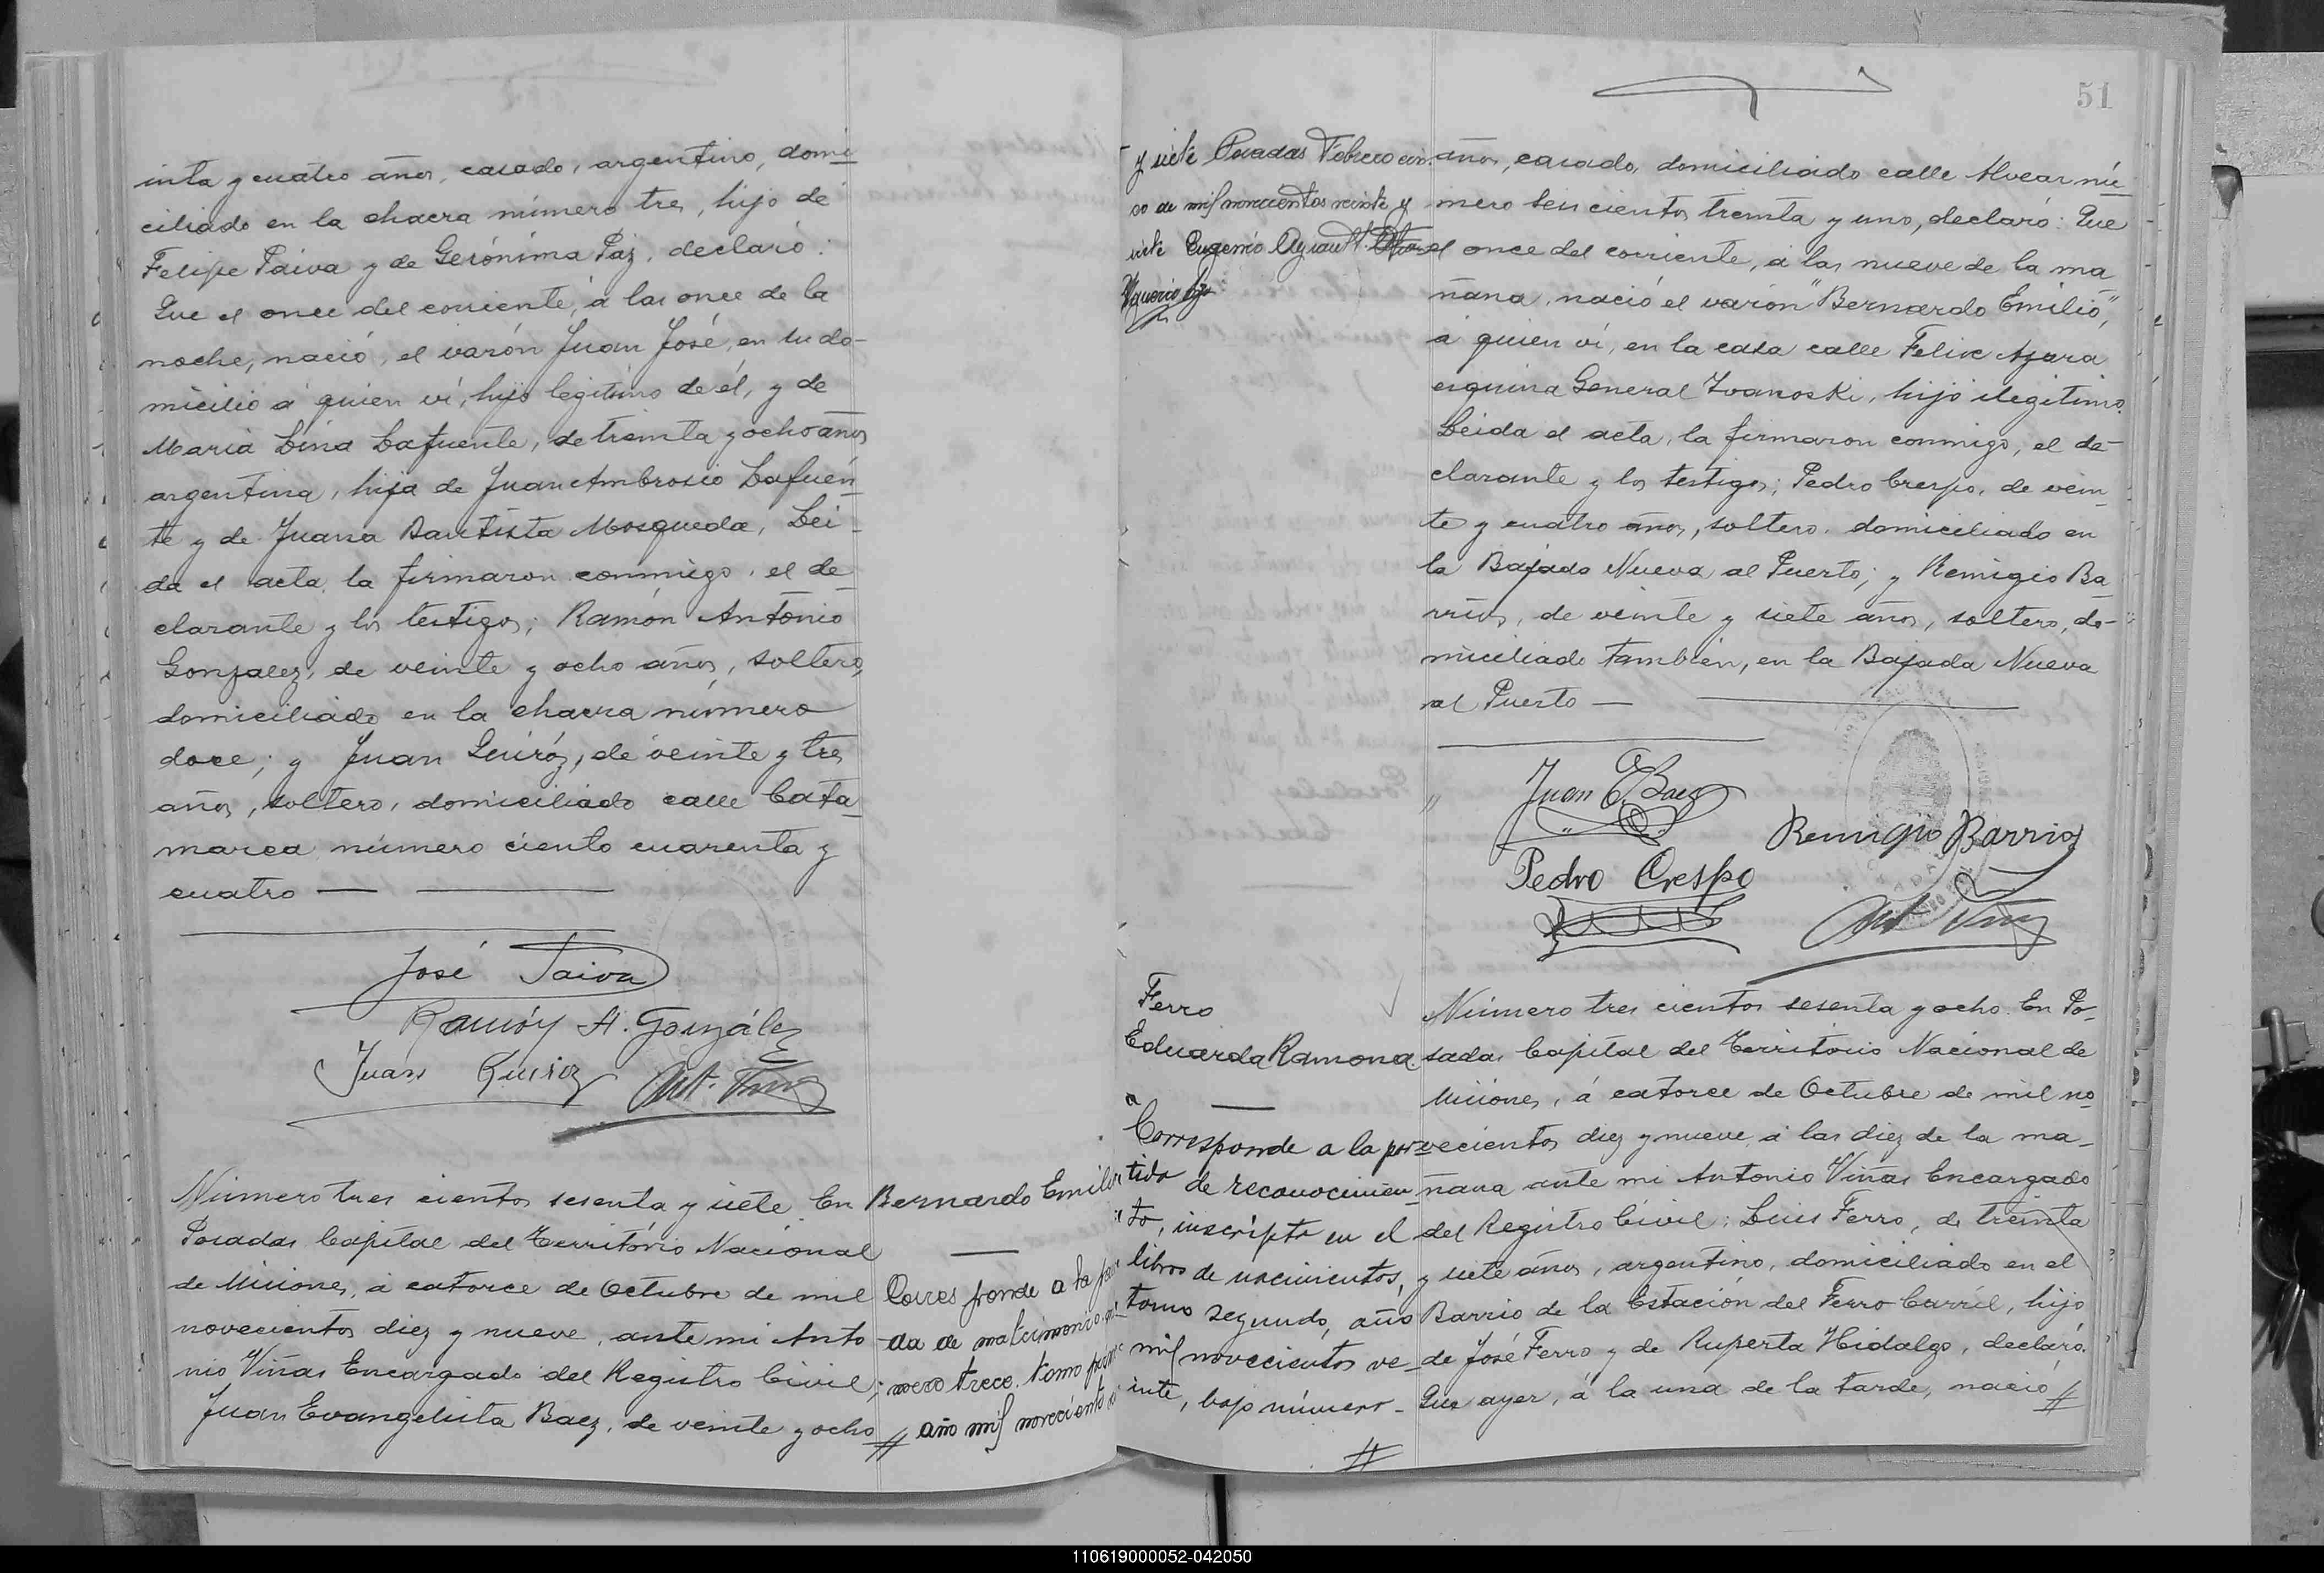 inta y cuatro años, casado, argentino, domi
ciliado en la chacra número tres, hijo de
Felipe Paiva y de Gerónima Paz, declaró:
Que el once del corriente, á las once de la
noche, nació, el varón Juan José, en su do-
micilio á quien ví, hijo legítimo de él, y de
María Lina Lafuente, de treinta y ocho años
argentina, hija de Juan Ambrosio Lafuen
te y de Juana Bautista Mosqueda, Lei-
da el acta, la firmaron conmigo, el de
clarante y los testigos; Ramón Antonio
Gonzalez, de veinte y ocho años, soltero,
domiciliado en la chacra número
doce; y Juan Quiróz, de veinte y tres
años, soltero, domiciliado calle Cata
marca número ciento cuarenta y
cuatro
José Paiva
Ramón A. González
Juan Quiroz
Número tres cientos sesenta y siete. En
Posadas Capital del Território Nacional
de Misiones, á catorce de Octubre de mil
novecientos diez y nueve, ante mi Anto
nio Viñas Encargado del Registro Civil;
Juan Evangelista Baez, de veinte y ocho
Bernardo Emilio
Corresponde a la par
da de matrimonio
mero trece, tomo
# año mil novecientos
51
y siete Posadas Febrero
de mil novecientos veinte y
siete Eugenio
años, casado, domiciliado calle Alvear nú
mero seis cientos treinta y uno, declaró: Que
el once del corriente, á las nueve de la ma
ñana, nació el varón "Bernardo Emilio",
á quien ví, en la casa calle Felix Azara
esquina General Ivanoski, hijo ilegitimo.
Leida el acta, la firmaron conmigo, el de-
clarante y los testigos; Pedro Crespo, de vein
te y cuatro años, soltero, domiciliado en
la Bajada Nueva al Puerto; y Remigio Ba
rrios, de veinte y siete años, soltero, do-
miciliado también, en la Bajada Nueva
al Puerto
Juan E Baez
Remigio Barrios
Pedro Crespo
Ferro
Eduarda Ramona
Corresponde a la par
tida de reconocimien
to, inscripta en el
libro de nacimientos,
tomo segundo, año
mil novecientos ve
inte, bajo número -
#
Número tres cientos sesenta y ocho. En Po-
sadas Capital del Territorio Nacional de
Misiones, á catorce de Octubre de mil no
vecientos diez y nueve, á las diez de la ma-
ñana ante mi Antonio Viñas Encargado
del Registro Civil; Luis Ferro, de treinta
y siete años, argentino, domiciliado en el
Barrio de la Estación del Ferro Carril, hijo
de José Ferro y de Ruperta Hidalgo, declaró.
Que ayer, á la una de la tarde, nació #
110619000052-042050